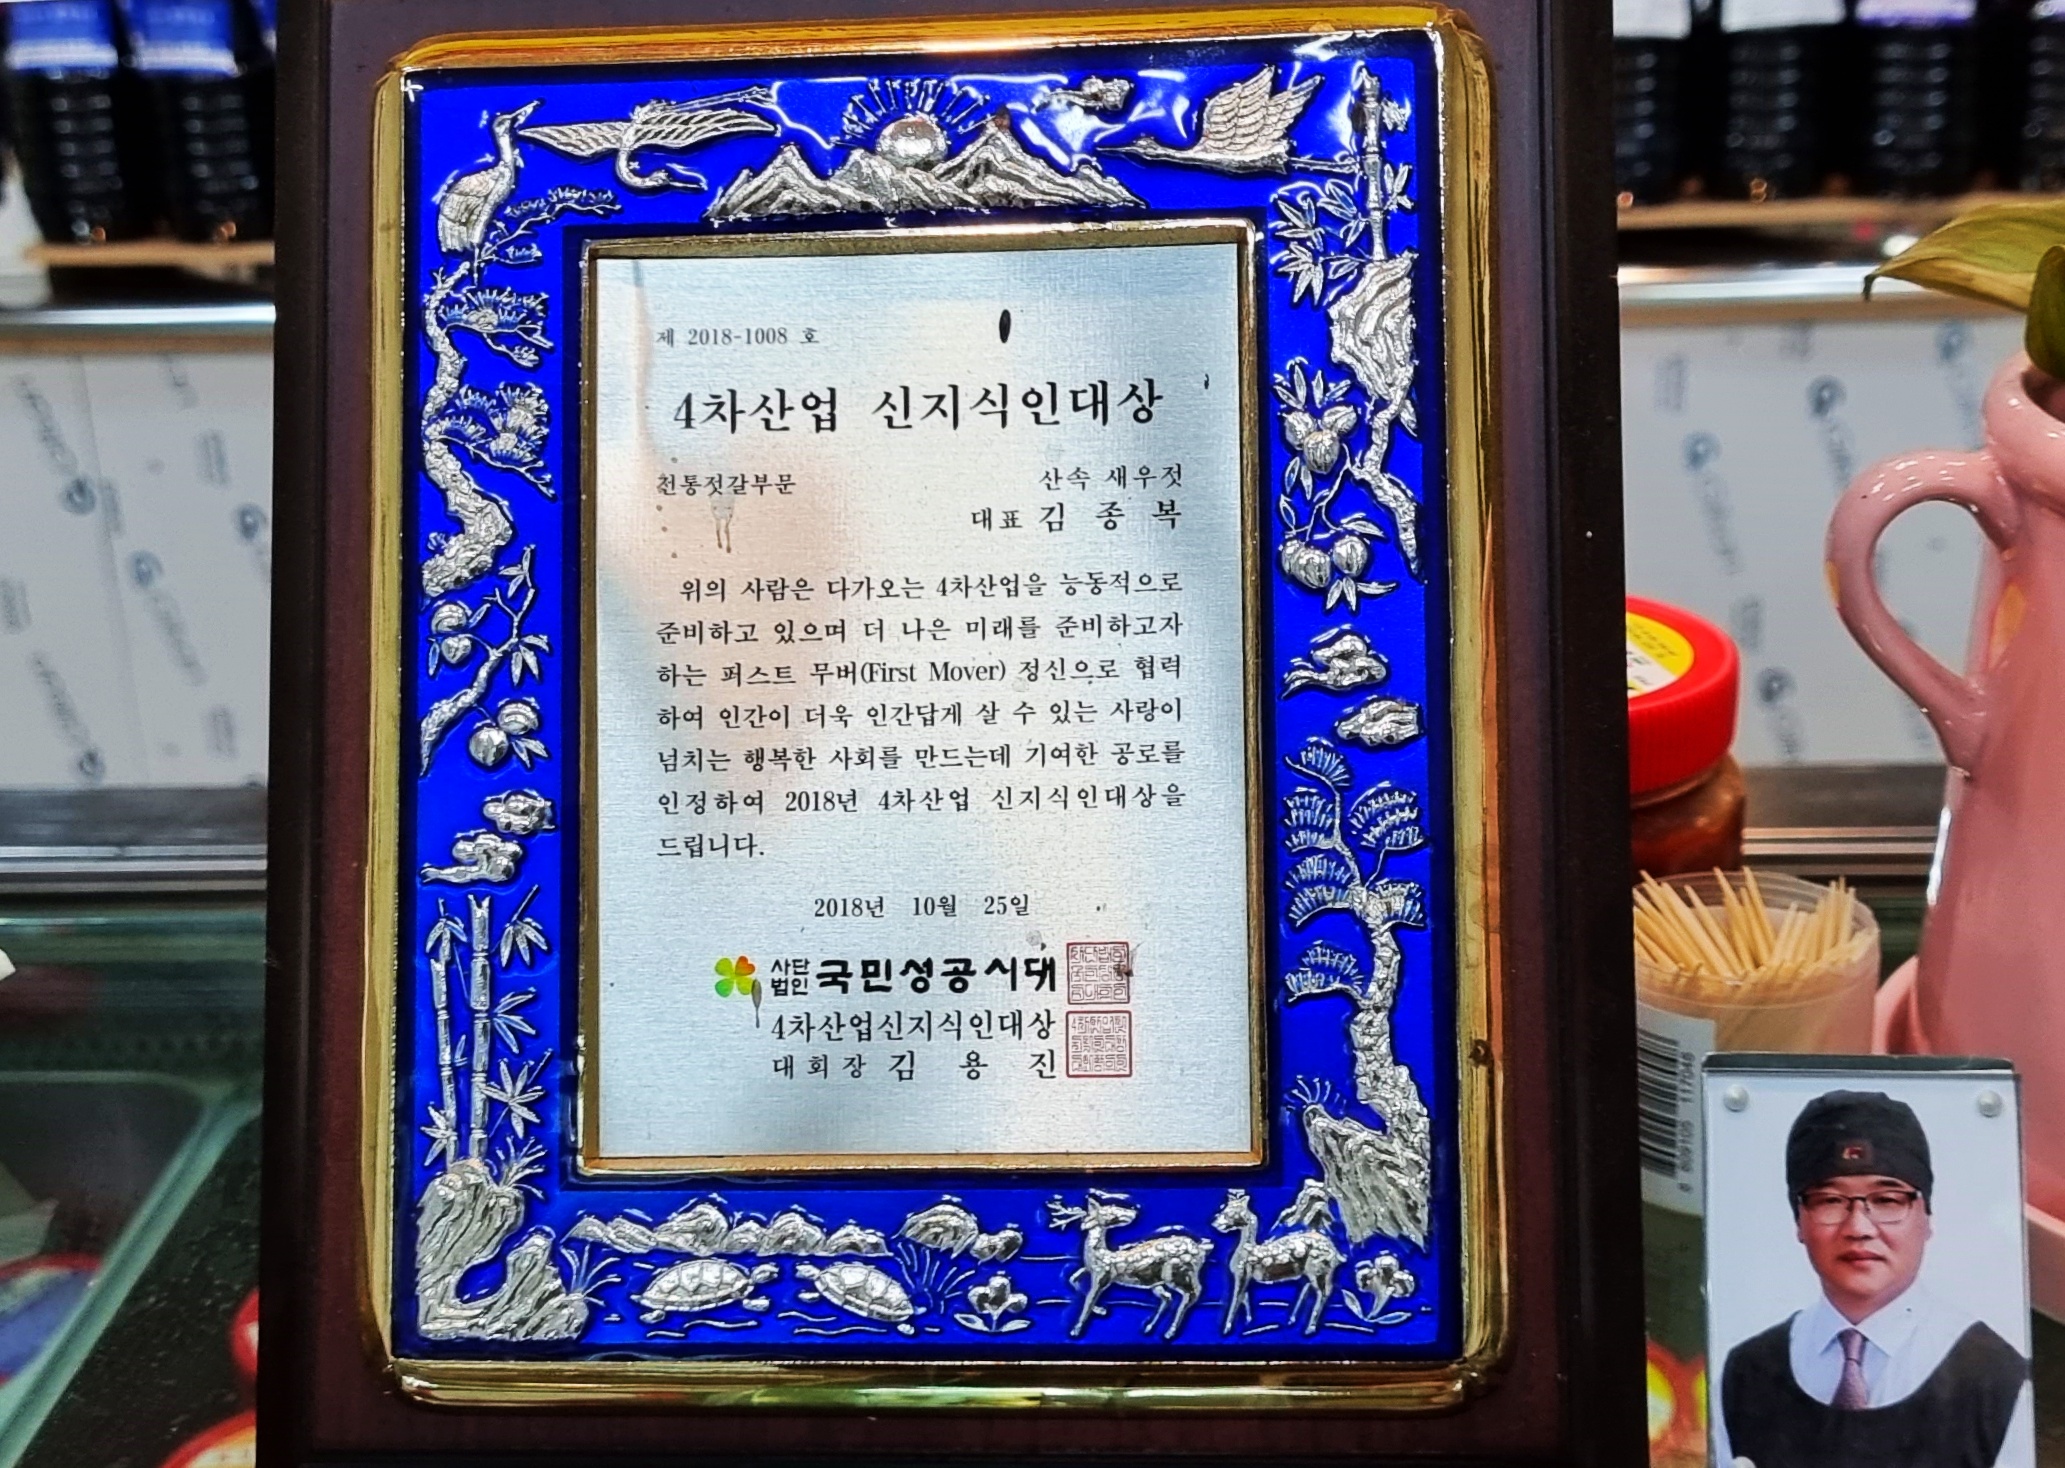 제 2018-1008 호
4차산업 신지식인대상
전통젓갈부문
산속 새우젓
대표 김 종 복
위의 사람은 다가오는 4차산업을 능동적으로
준비하고 있으며 더 나은 미래를 준비하고자
하는 퍼스트 무버(First Mover) 정신으로 협력
하여 인간이 더욱 인간답게 살 수 있는 사랑이
넘치는 행복한 사회를 만드는데 기여한 공로를
인정하여 2018년 4차산업 신지식인대상을
드립니다.
2018년 10월 25일
사단법인 국민성공시대
4차산업신지식인대상
대회장 김 용 진